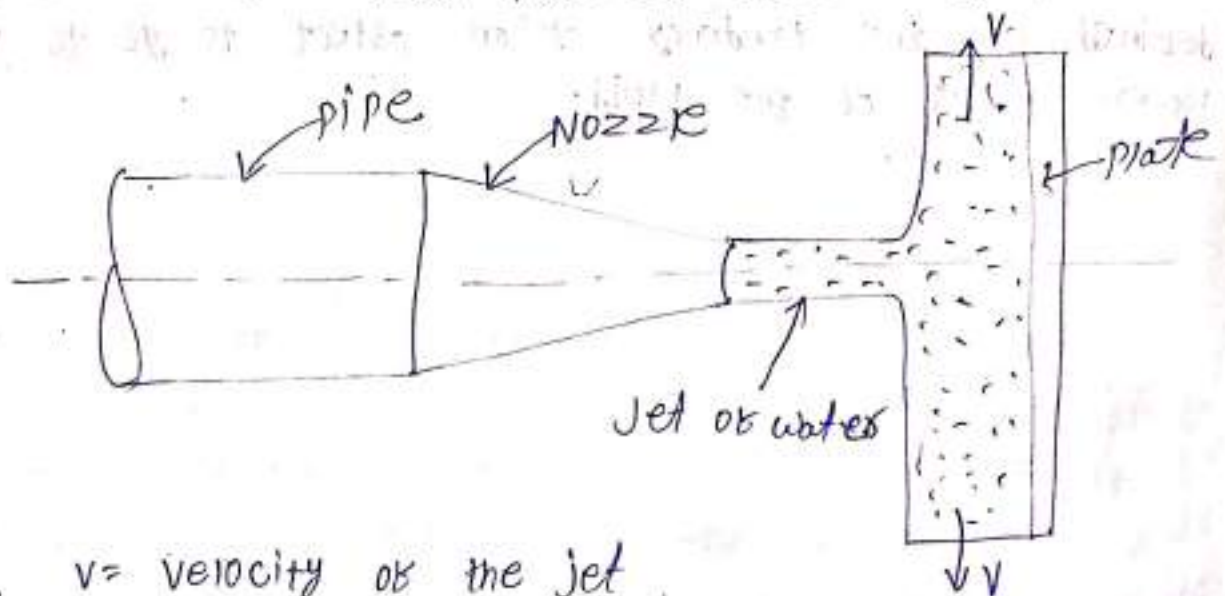 V
pipe
Nozzle
plate
Jet of water
v= velocity of the jet
V